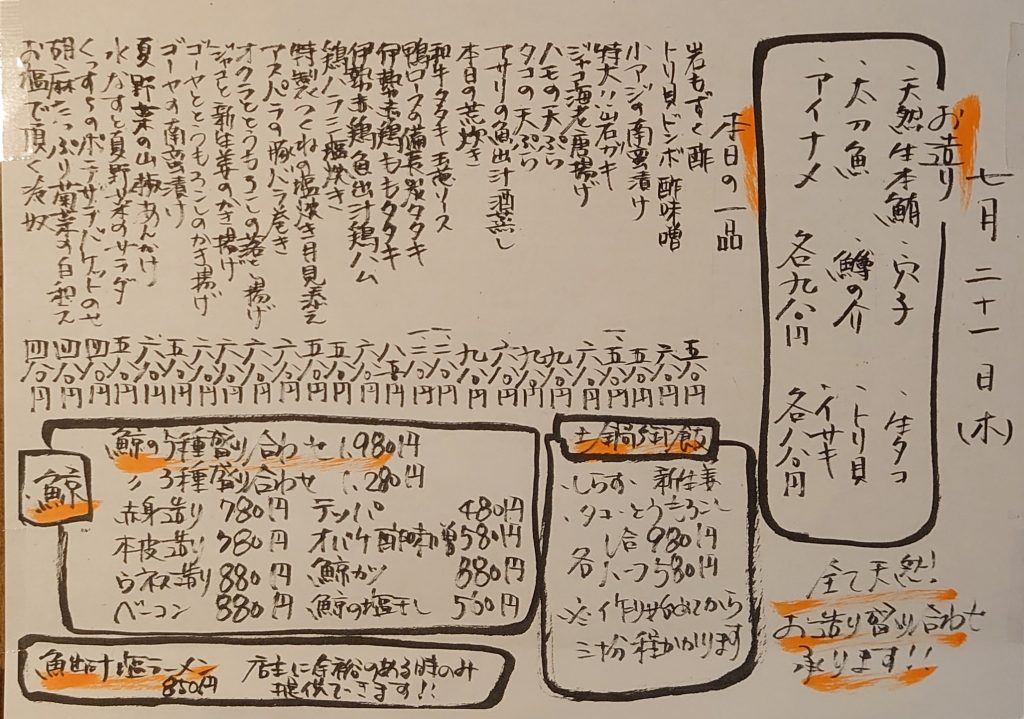 七月二十一日(木)
お造り
・天然生本鮪 ・穴子 ・生タコ
・太刀魚 ・鱒の介 ・トリ貝
・アイナメ 各九八〇円 ・イサキ 各八八〇円
全て天然!
お造り盛り合わせ
承ります!!
本日の一品
岩もずく酢 五八〇円
トリ貝ドンボ酢味噌 六八〇円
小アジの南蛮漬け 五八〇円
特大!!岩ガキ
ジャコ海老唐揚げ 六八〇円
ハモの天ぷら 九八〇円
タコの天ぷら 九八〇円
アサリの魚出汁酒蒸し 六八〇円
本日の荒炊き 九八〇円
和牛タタキ
鴨ロースの備長炭タタキ
伊勢赤鶏ももタタキ
伊勢赤鶏魚出汁鶏ハム
鶏ハラミ塩炊き 五八〇円
特製つくねの塩炊き月見
アスパラの豚バラ巻き 六八〇円
オクラととうもろこしの落し揚げ 六八〇円
ジャコと新生姜のかき揚げ 六八〇円
ゴーヤととうもろこしのかき揚げ 六八〇円
ゴーヤの南蛮漬け 五八〇円
夏野菜の山椒あんかけ 六八〇円
水なすと夏野菜のサラダ 五八〇円
くんすらのポテサラバケットのせ 四八〇円
胡麻たっぷり菊菜の白和え 四八〇円
お塩で頂く冷奴 四八〇円
土鍋御飯
・しらす 新生姜
・タコ・とうもろこし
各 一合 980円
ハーフ 580円
※作り始めてから
三十分程かかります
鯨
鯨の5種盛り合わせ 1,980円
〃 3種盛り合わせ 1,280円
赤身造り 780円 テッパ 480円
本皮造り 780円 オバケ酢味噌 580円
ウネス造り 880円 鯨カツ 880円
ベーコン 880円 鯨の塩干し 500円
魚出汁塩ラーメン
850円
店主に余裕のある時のみ
提供できます!!